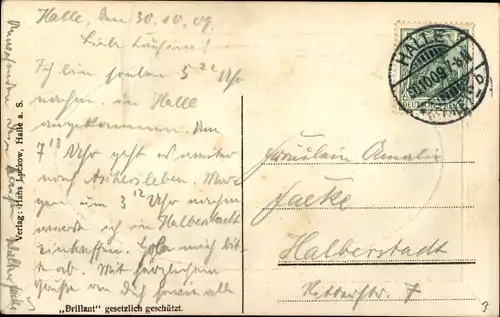 Halle, den 30.10.09.
Liebe Cousine!
Ich bin soeben 5 22 Uhr
nachm. in Halle
angekommen. Um
7 18 Uhr geht es weiter
nach Aschersleben. Mor-
gen um 3 12 Uhr nachm
werde ich in Halberstadt
eintreffen. Hole mich bit-
te ab. Mit herzlichem
Grüße an Dich sowie alle
Verlag: Hans Luckow, Halle a. S.
„Brillant" gesetzlich geschützt.
HALLE
30.10.09.7-8N.
Fräulein Amalie
Halberstadt
Ritterstr. 7
3